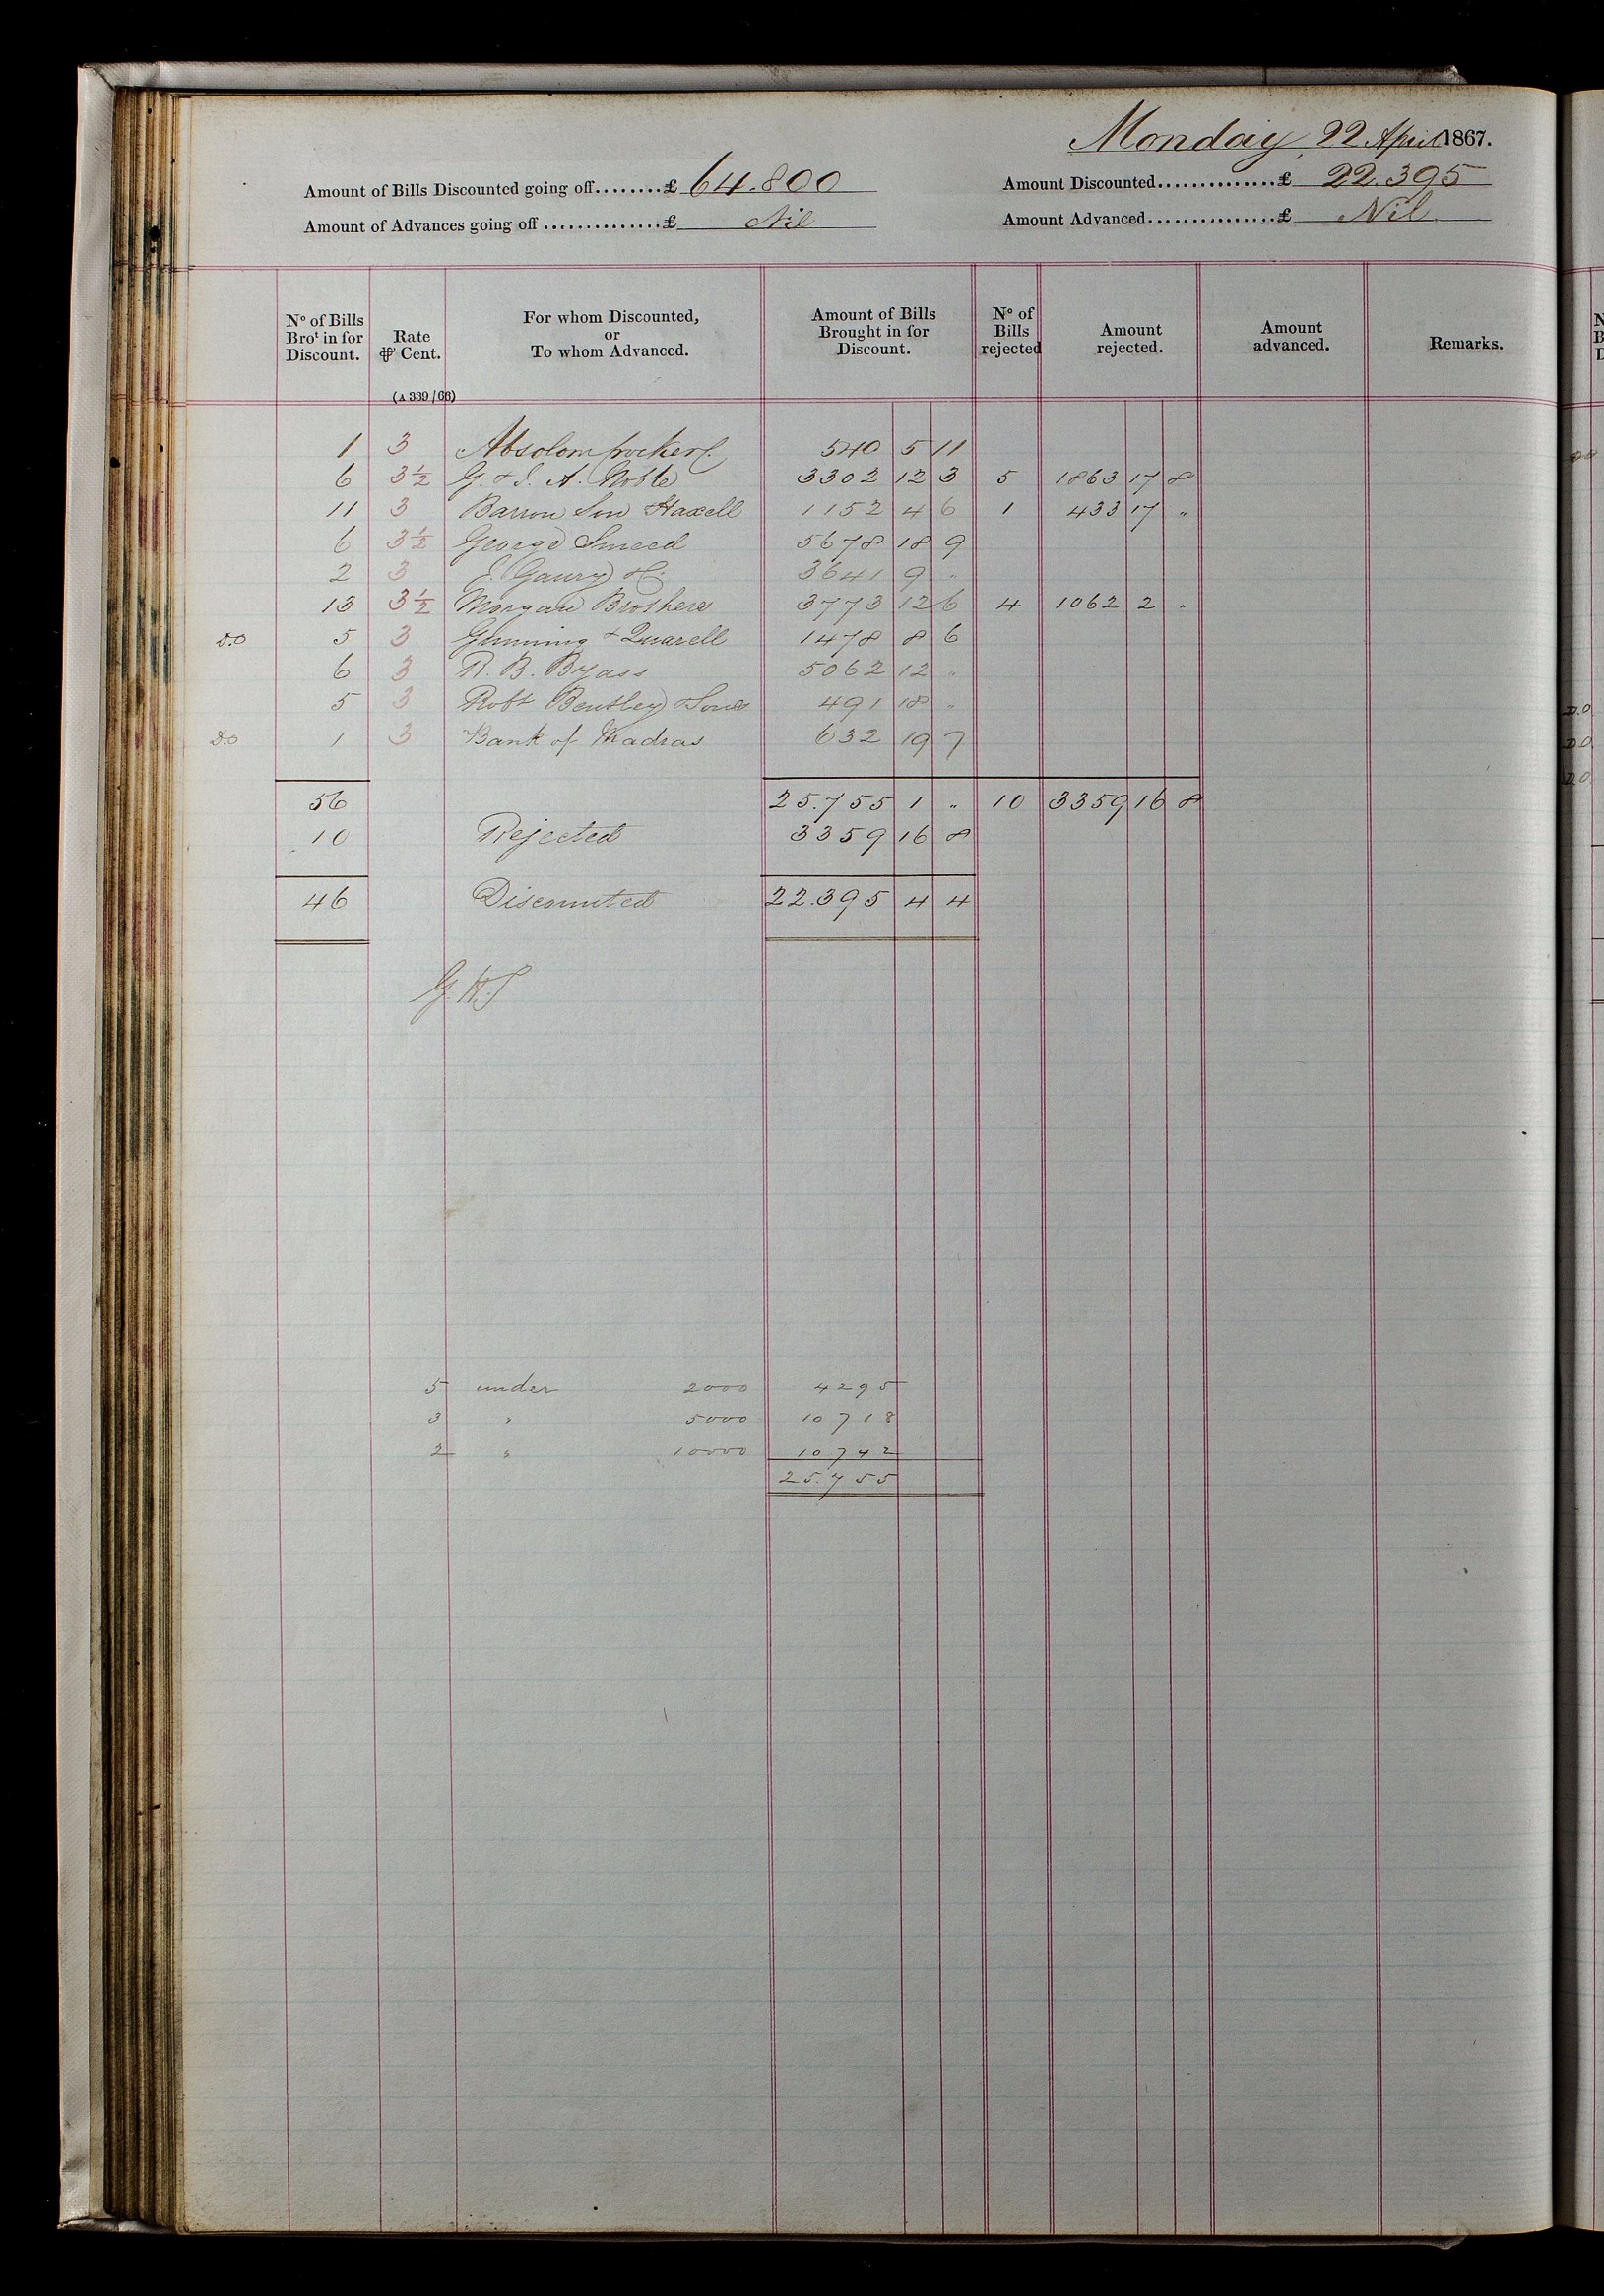 Monday 22 April 1867.
Amount of Bills Discounted going off........£ 64.800
Amount Discounted...............£ 22.395
Amount of Advances going off...............£ Nil
Amount Advanced................£ Nil
Nº of Bills Broᵗ in for Discount. Rate ⅌ Cent. For whom Discounted, or To whom Advanced. Amount of Bills Brought in for Discount. Nº of Bills rejected Amount rejected. Amount advanced. Remarks.
(A 339/66)
1 3 Absolom 540 5 11
6 3½ G. & J. A. Noble 3302 12 3 5 1863 17 8
11 3 Barron Son Haxell 1152 4 6 1 433 17 "
6 3½ George Smeed 5678 18 9
2 3 3641 9 "
13 3½ Morgan Brothers 3773 12 6 4 1062 2 "
D.O 5 3 & Quarell 1478 8 6
6 3 R. B. Byass 5062 12 "
5 3 Robt Bentley & Sons 491 18 "
D.O 1 3 Bank of Madras 632 19 7
56 25.755 1 " 10 3359 16 8
10 Rejected 3359 16 8
46 Discounted 22.395 4 4
5 under 2000 4295
3 " 5000 10718
2 " 10000 10742
25.755
D.O
D.O
D.O